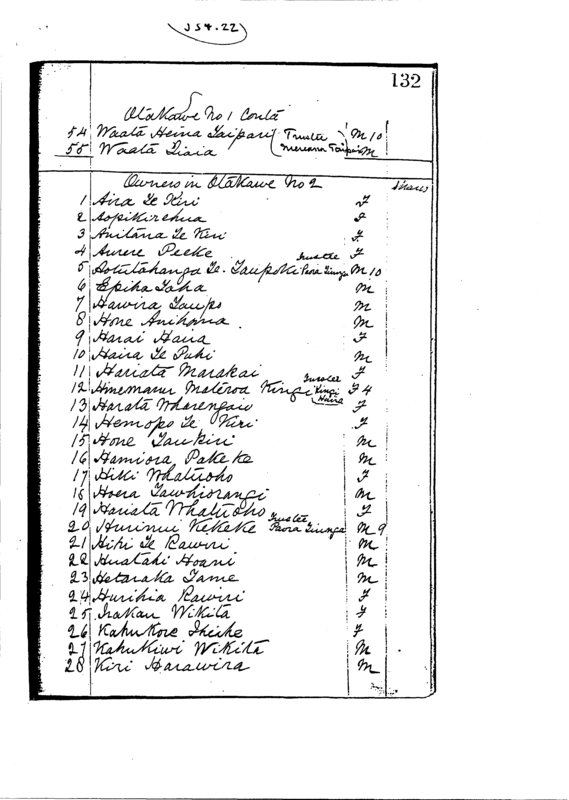 JS4.22
132
Otakawe No 1 Contd
54 Waata Heina Taipari (Trustee Mereana Taipari) M 10
55 Waata Tiaia M
Owners in Otakawe No 2 Shares
1 Aira Te Kiri F
2 Aopikirehua F
3 Anitana Te Kiri F
4 Aurere Peeke F
5 Aotutahanga Te Taupoki Trustee Paora Tiunga M 10
6 Epiha Taha M
7 Hawira Taupo M
8 Hone Anihana M
9 Harai Haira F
10 Haira Te Puhi M
11 Hariata Marakai F
12 Hinemanu Materoa Kingi Trustee Kingi Haira F 4
13 Harata Wharengaio F
14 Hemopo Te Kiri F
15 Hone Taukiri M
16 Hamiora Pakeke M
17 Hiki Whatuoho F
18 Hoera Tawhiorangi M
19 Hariata Whatuoho F
20 Hurinui Kekeke Trustee Paora Tiunga M 9
21 Hihi Te Rawiri M
22 Huatahi Hoani M
23 Hetaraka Tame M
24 Hurihia Rawiri F
25 Irakau Wikita F
26 Kahukore Iheihe F
27 Kahukiwi Wikita M
28 Kiri Harawira M